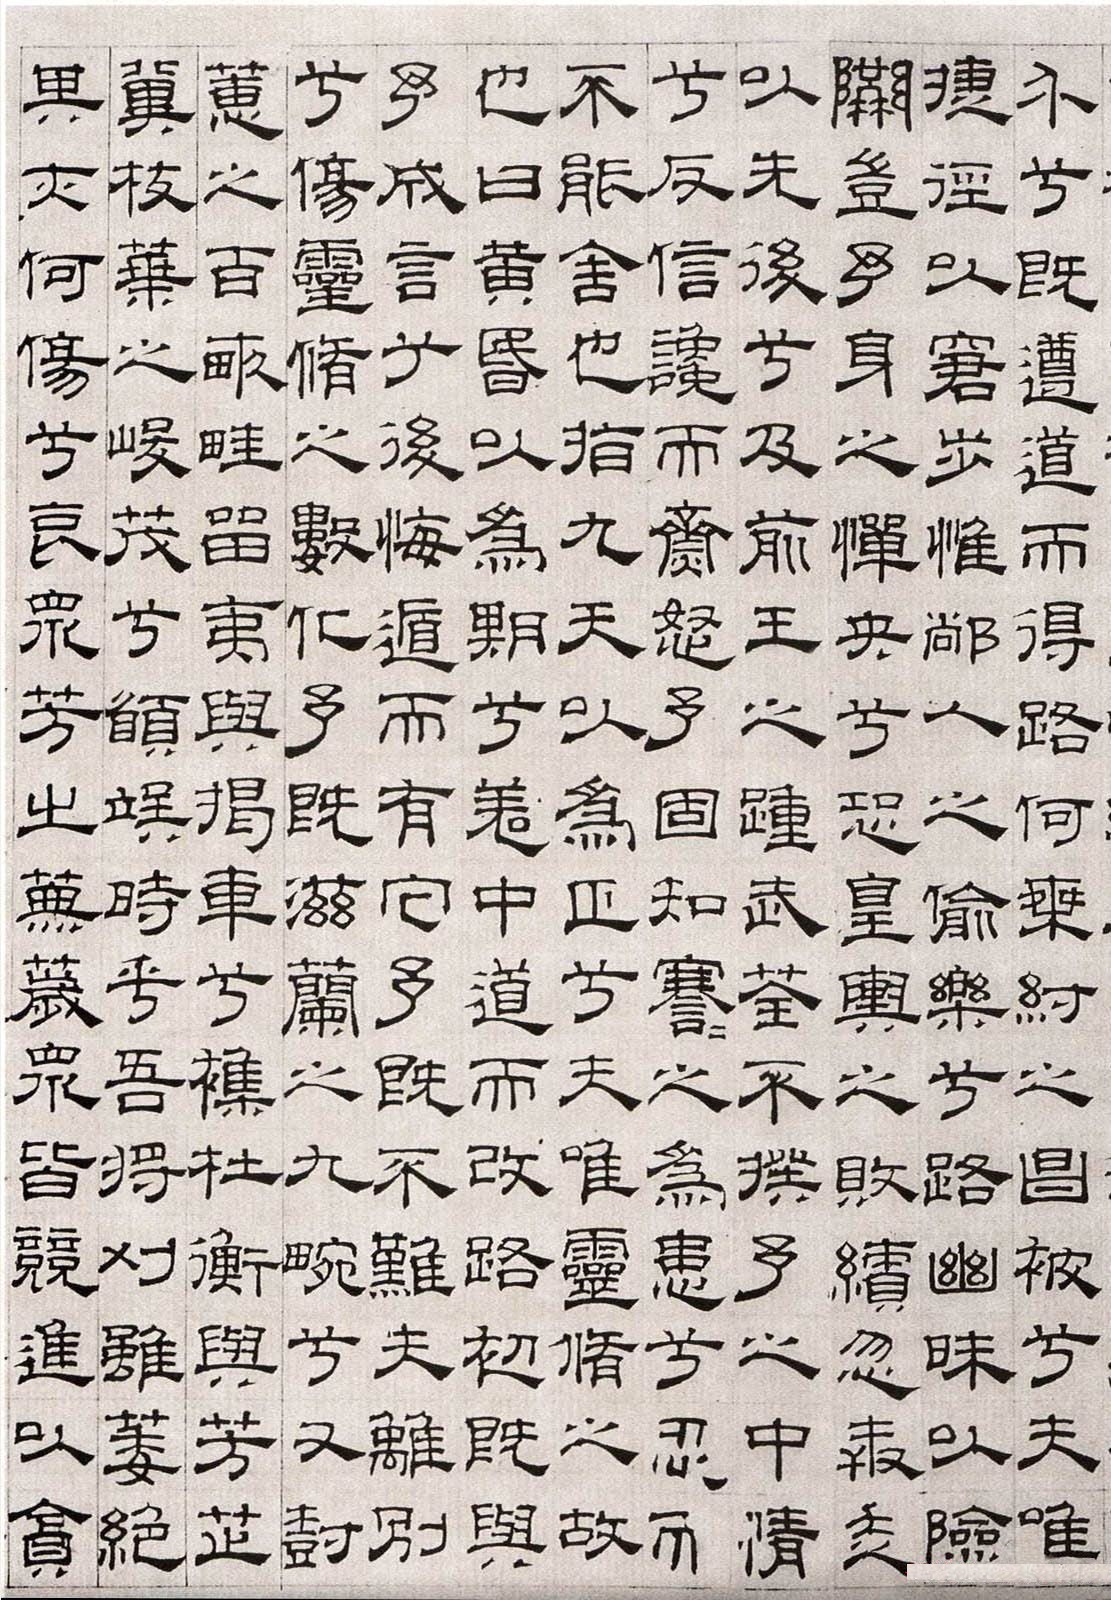 介兮既遵道而得路何桀紂之昌被兮夫唯
捷徑以窘步惟䣊人之偷樂兮路幽昧以險
隘豈予身之憚央兮恐皇輿之敗績忽奔走
以先後兮及前王之踵武荃不揆予之中情
兮反信讒而齋怒予固知謇〻之為患兮忍而
不能舍也指九天以為正兮夫唯靈脩之故
也曰黃昏以為期兮羌中道而改路初既與
予成言兮後悔遁而有它予既不難夫離別
兮傷靈脩之數化予既滋蘭之九畹兮又樹
蕙之百畝畦留夷與揭車兮雜杜衡與芳芷
冀枝葉之峻茂兮願竢時乎吾將刈雖萎絕
其亦何傷兮哀眾芳之蕪穢眾皆競進以貪